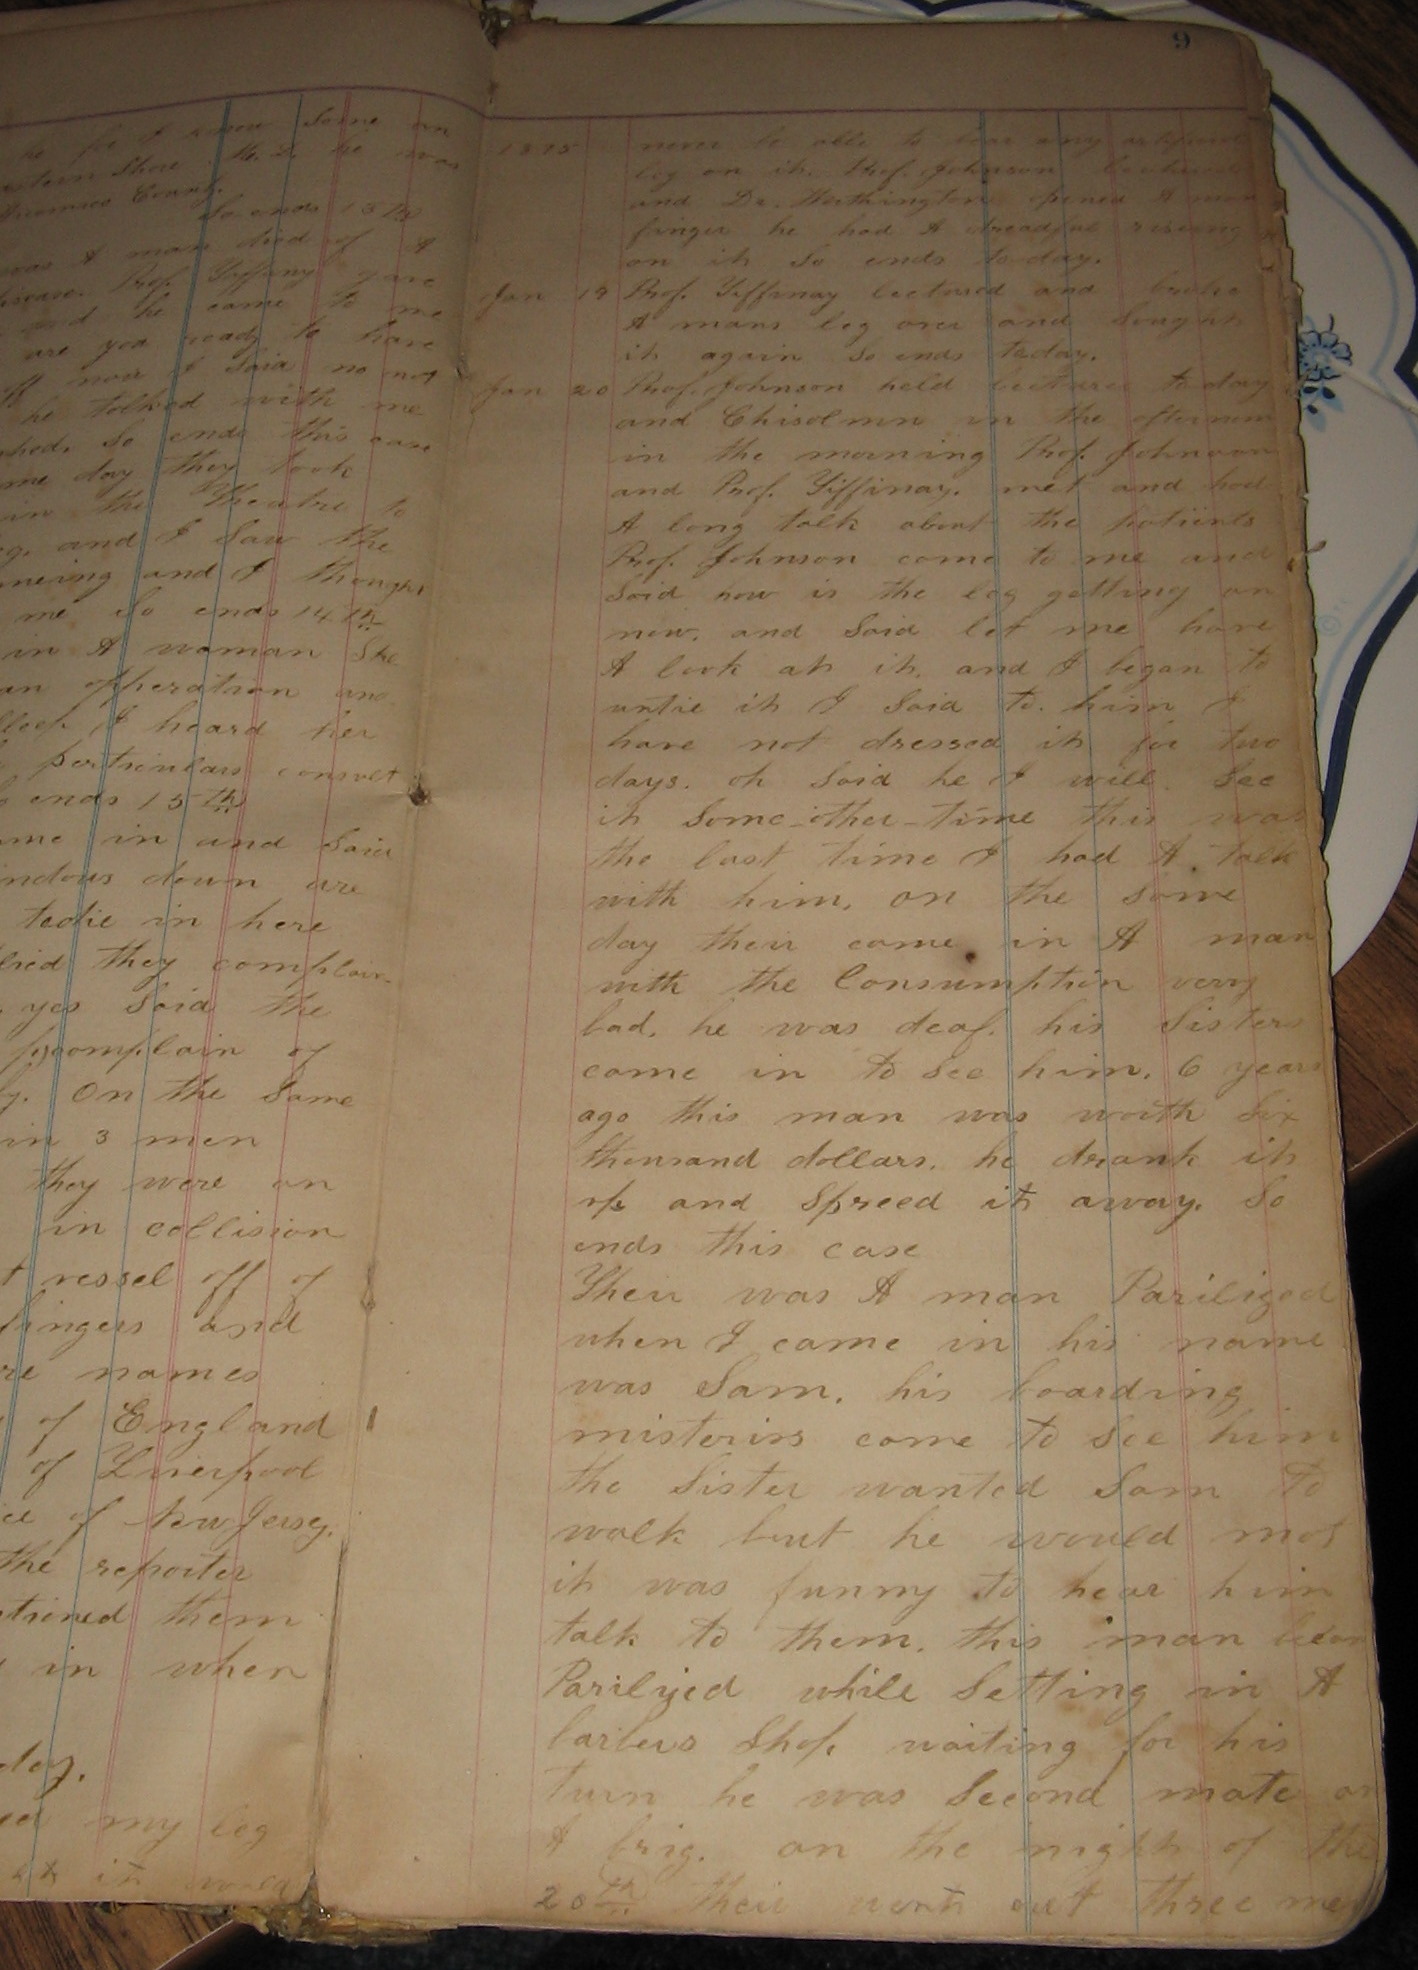 he for I know some on
Shore Md. he was
County.
So ends 13th
was A man died of A
disease. Prof. Tiffany gave
and he came to me
are you ready to have
off now I said no not
he tolked with me
So ends this case
me day they took
in the Theatre to
and I Saw the
and I thought
me So ends 14th
in A woman She
an opperation and
I heard her
pertienlars consult
ends 15th
in and Said
down are
todie in here
they complain
yes Said the
complain of
On the Same
in 3 men
they were on
in collision
vessel off of
fingers and
names
of England
of Liverpool
of New Jersey.
the reporter
them
in when
day.
my leg
9
1875 never be able to bear any
leg on it. Prof. Johnson lectured
and Dr. Worthington opened A man
finger he had A dreadful riseing
on it So ends today.
Jan 19 Prof. Tiffinay lectured and broke
A mans leg over and
it again So ends today.
Jan 20 Prof. Johnson held lectures to day
and Chisolmn in the afternoon
in the morning Prof. Johnson
and Prof. Tiffinay. met and had
A long talk about the patients
Prof. Johnson come to me and
Said how is the leg getting on
now. and Said let me have
A look at it. and I began to
untie it I Said to. him I
have not dressed it for two
days. oh Said he I will. See
it Some other time this was
the last time I had A talk
with him, on the Same
day their came in A man
with the Consumption verry
bad. he was deaf. his Sisters
come in to See him. 6 years
ago this man was worth Six
thousand dollars. he drank it
up and Spreed it away. So
ends this case
Their was A man Parilized
when I came in his name
was Sam. his boarding
misterirs come to See him
the Sister wanted Sam to
walk but he would not
it was funny to hear him
talk to them. this man
Parilized while Setting in A
barbers Shop waiting for his
turn he was Second mate on
A brig. on the night of the
20th. their went out three men